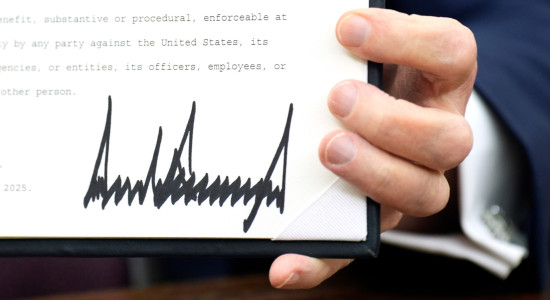 enefit, substantive or procedural, enforceable at
y by any party against the United States, its
encies, or entities, its officers, employees, or
other person.
2025.